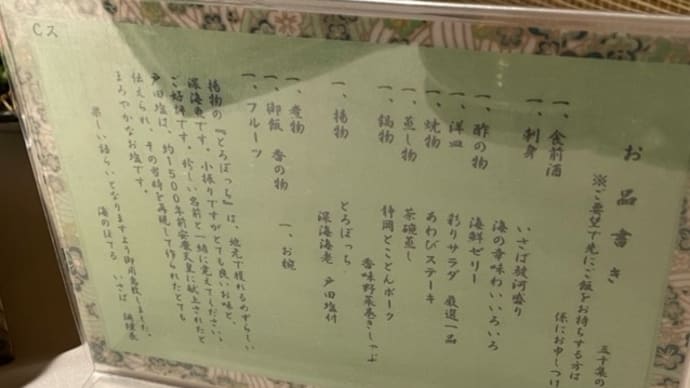 Cス
お品書き
五十集の
※ご要望で先にご飯をお持ちする方は
係にお申しつけ
一、食前酒
一、刺身 いさば駿河盛り
海の幸味わいいろいろ
一、酢の物 海鮮ゼリー
一、洋皿 彩りサラダ 厳選一品
一、焼物 あわびステーキ
一、蒸し物 茶碗蒸し
一、鍋物 静岡とことんポーク
香味野菜巻きしゃぶ
一、揚物 とろぼっち、
深海海老 戸田塩付
一、煮物
一、御飯 香の物 一、お椀
一、フルーツ
揚物の『とろぼっち』は、地元で獲れるめずらしい
深海魚です。小振りですがとても良いお味と、
ご好評です。珍しい名前と一緒に覚えてくださいね
戸田塩は、約1500年前安康天皇に献上されたと
伝えられ、その当時を再現して作られたとても
まろやかなお塩です。
楽しい語らいとなりますよう御用意致しました。
海のほてる いさば 調理長